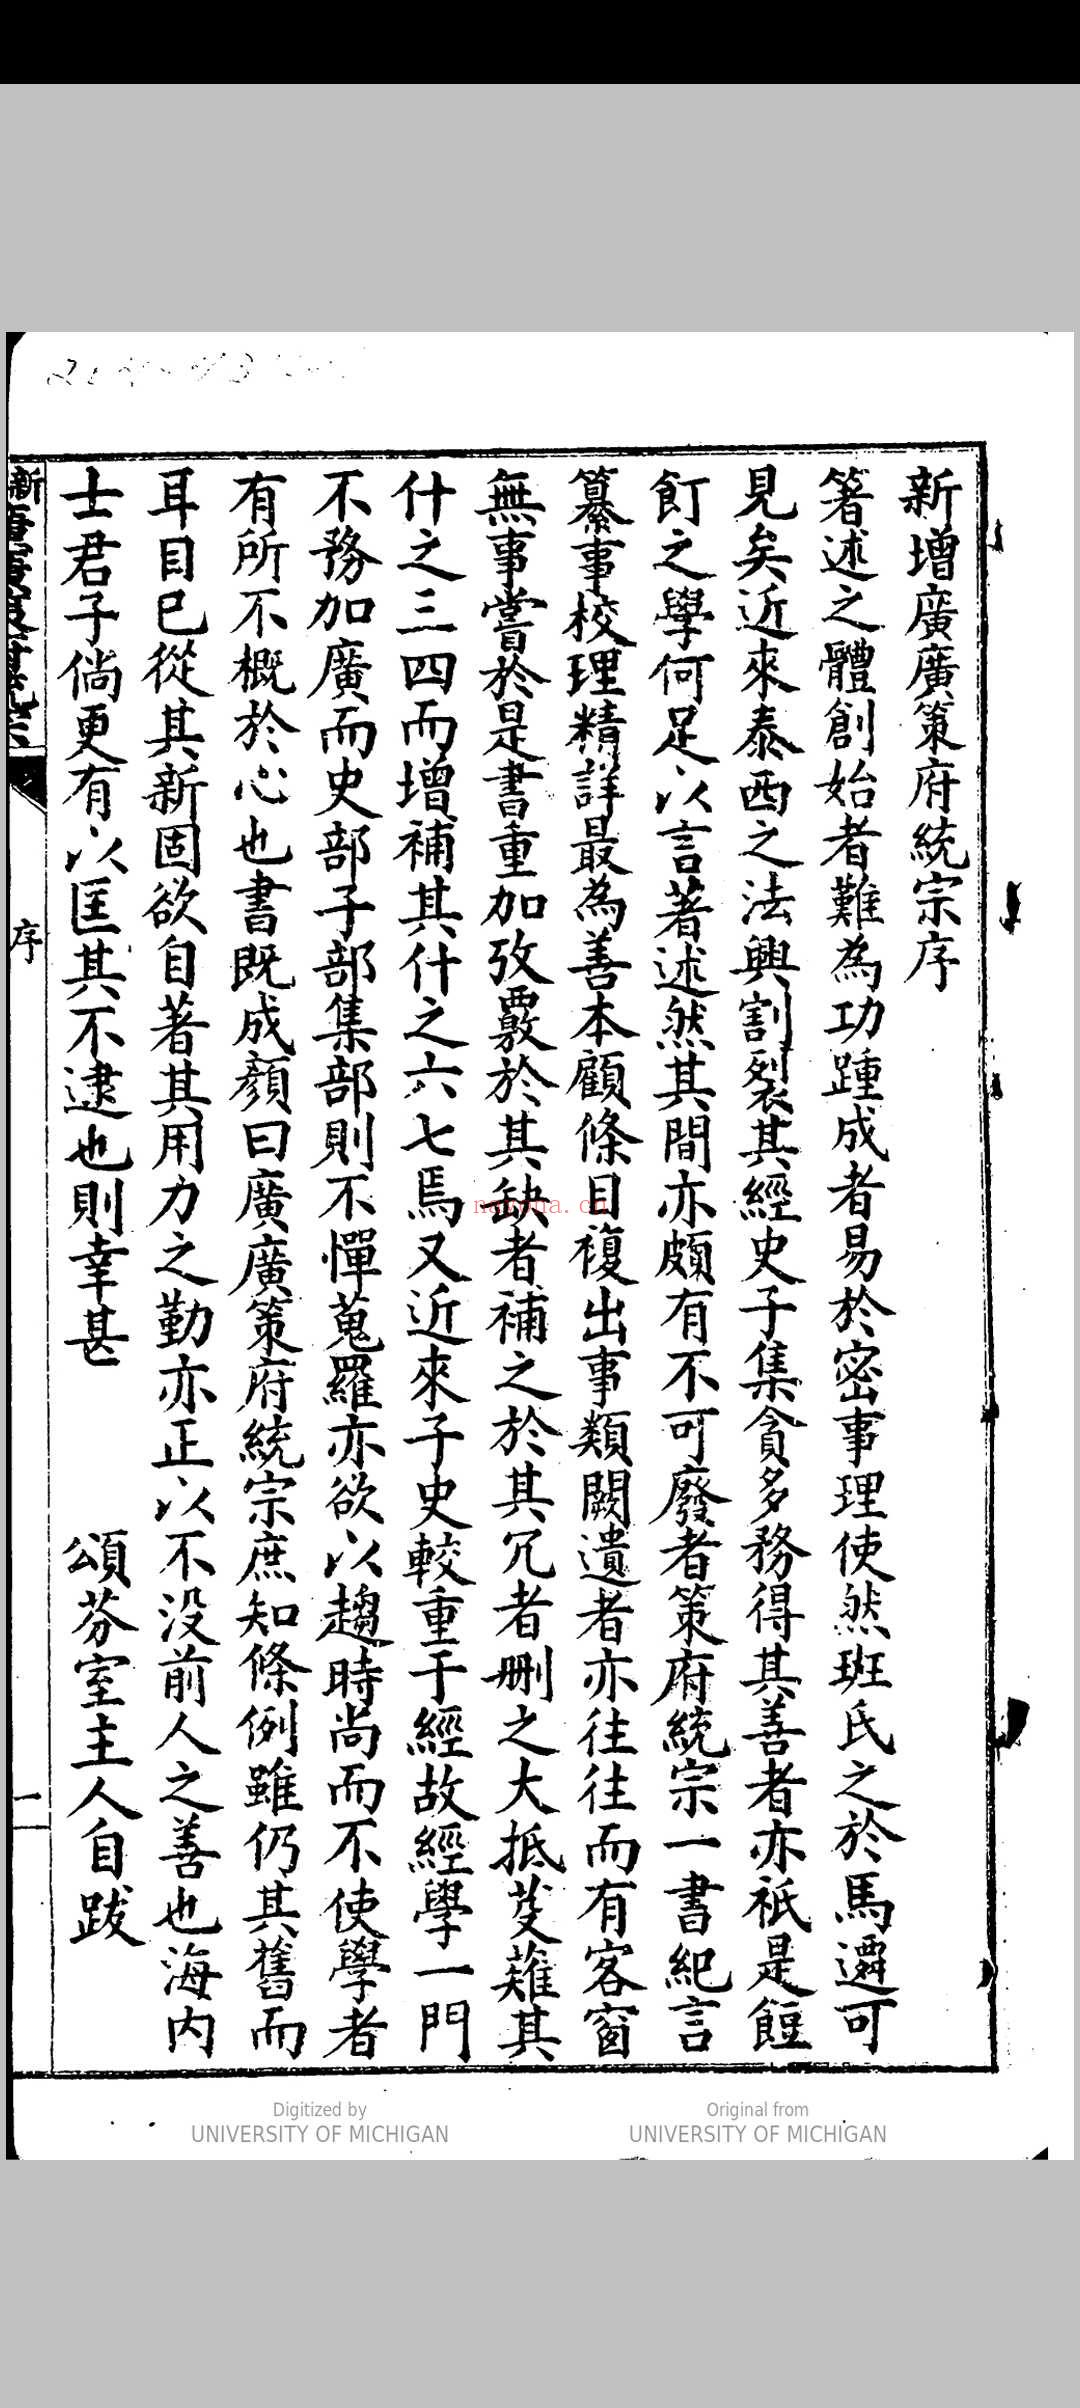 新增廣廣策府統宗序
箸述之體創始者難為功踵成者易於密事理使然班氏之於馬遷可
見矣近來泰西之法興割裂其經史子集貪多務得其善者亦祇是餖
飣之學何足以言著述然其間亦頗有不可廢者策府統宗一書紀言
纂事校理精詳最為善本顧條目複出事類闕遺者亦往往而有客窗
無事嘗於是書重加攷覈於其缺者補之於其冗者刪之大抵芟薙其
什之三四而增補其什之六七焉又近來子史較重于經故經學一門
不務加廣而史部子部集部則不憚蒐羅亦欲以趨時尚而不使學者
有所不概於心也書既成顏曰廣廣策府統宗庶知條例雖仍其舊而
耳目已從其新固欲自著其用力之勤亦正以不没前人之善也海内
士君子倘更有以匡其不逮也則幸甚 頌芬室主人自跋
序
一
nayona.cn
Digitized by
UNIVERSITY OF MICHIGAN
Original from
UNIVERSITY OF MICHIGAN